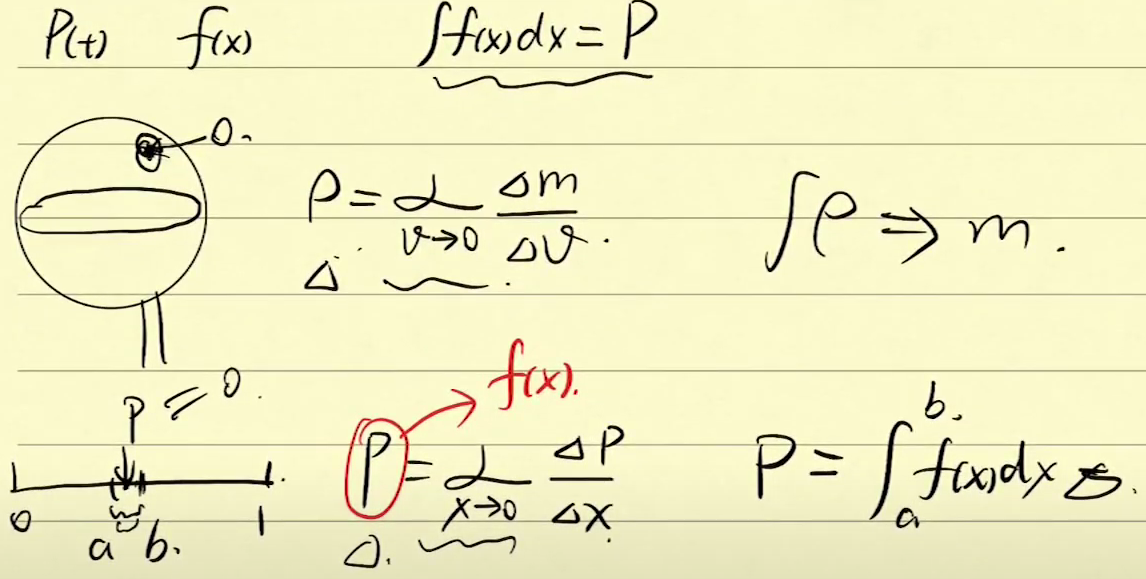 P(t) f(x) ∫f(x)dx = P
0.
ρ = lim v→0 Δm/Δv.
Δ
∫ρ ⇒ m.
P = 0.
f(x).
P = lim x→0 ΔP/Δx
Δ.
P = ∫_a^b. f(x)dx
0 a b. 1